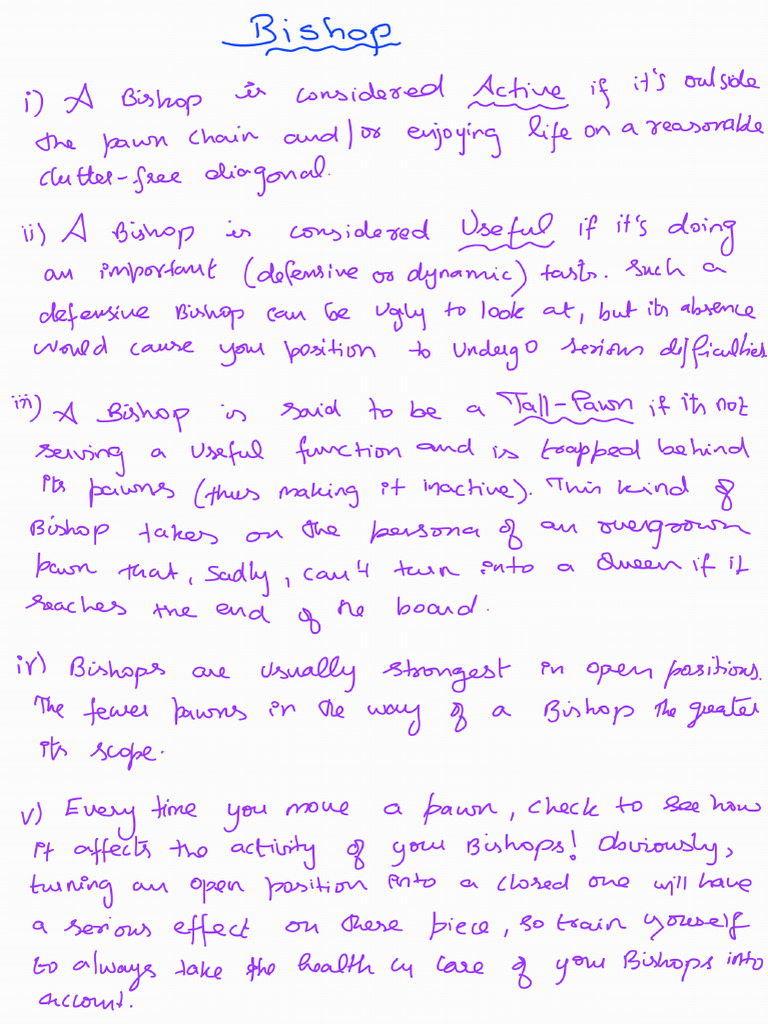 Bishop
i) A Bishop is considered Active if it's outside
the pawn chain and/or enjoying life on a reasonable
clutter-free diagonal.
ii) A Bishop is considered Useful if it's doing
an important (defensive or dynamic) task. Such a
defensive Bishop can be ugly to look at, but its absence
would cause your position to undergo serious difficulties
iii) A Bishop is said to be a Tall-Pawn if its not
serving a useful function and is trapped behind
its pawns (thus making it inactive). This kind of
Bishop takes on the persona of an overgrown
pawn that, sadly, can't turn into a Queen if it
reaches the end of the board.
iv) Bishops are usually strongest in open positions.
The fewer pawns in the way of a Bishop the greater
its scope.
v) Every time you move a pawn, check to see how
it affects the activity of your Bishops! Obviously,
turning an open position into a closed one will have
a serious effect on these piece, so train yourself
to always take the health care of your Bishops into
account.